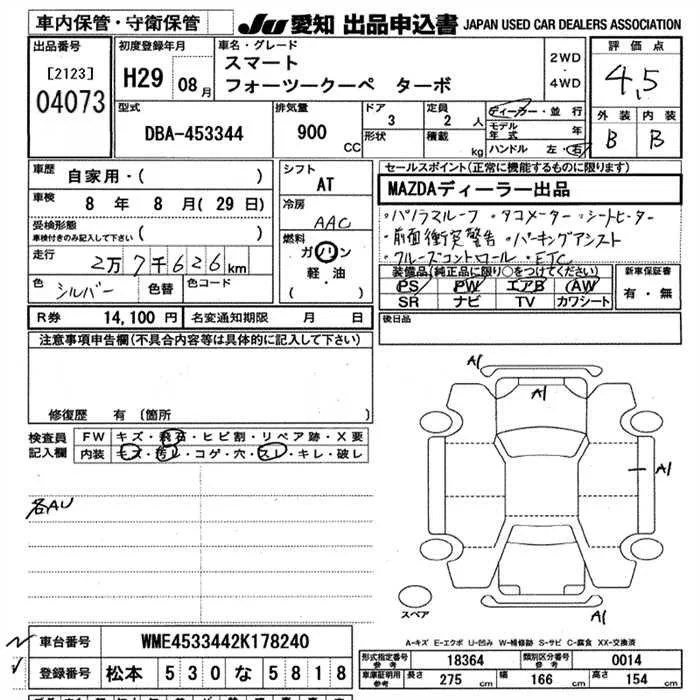 車内保管・守衛保管
JU 愛知 出品申込書 JAPAN USED CAR DEALERS ASSOCIATION
出品番号
[2123]
04073
初度登録年月
H29 08月
車名・グレード
スマート
フォーツークーペ ターボ
2WD
・
4WD
評価点
4,5
外装 内装
B B
型式
DBA-453344
排気量
900 CC
ドア
3
形状
定員
2 人
積載 kg
ディーラー・並行
モデル年式 年
ハンドル 左・右
車歴 自家用・( )
車検 8 年 8 月( 29 日)
受検形態
車検付きのみ記入して下さい( )
走行 2万7千626km
色 シルバー 色替 色コード
シフト
AT
冷房
AAC
燃料
ガソリン
軽・油
( )
セールスポイント(正常に機能するものに限ります)
MAZDAディーラー出品
・パノラマルーフ ・タコメーター ・シートヒーター
・前面衝突警告 ・パーキングアシスト
・クルーズコントロール ・ETC
装備品(純正品に限り○をつけてください)
PS PW エアB AW
SR ナビ TV カワシート
新車保証書
有・無
R券 14,100 円 名変通知期限 月 日
後日品
注意事項申告欄(不具合内容等は具体的に記入して下さい)
修復歴 有 (箇所 )
検査員
記入欄
FW キズ・飛石・ヒビ割・リペア跡・X要
内装 キズ・汚れ・コゲ・穴・スレ・キレ・破レ
各AU
A1
A1
A1
A1
スペア
A-キズ E-エクボ U-凹み W-補修跡 S-サビ C-腐食 XX-交換済
車台番号 WME4533442K178240
登録番号 松本 530 な 5818
形式指定番号 参考 18364 類別区分番号 参考 0014
車庫証明用 参考 長さ 275 cm 幅 166 cm 高さ 154 cm